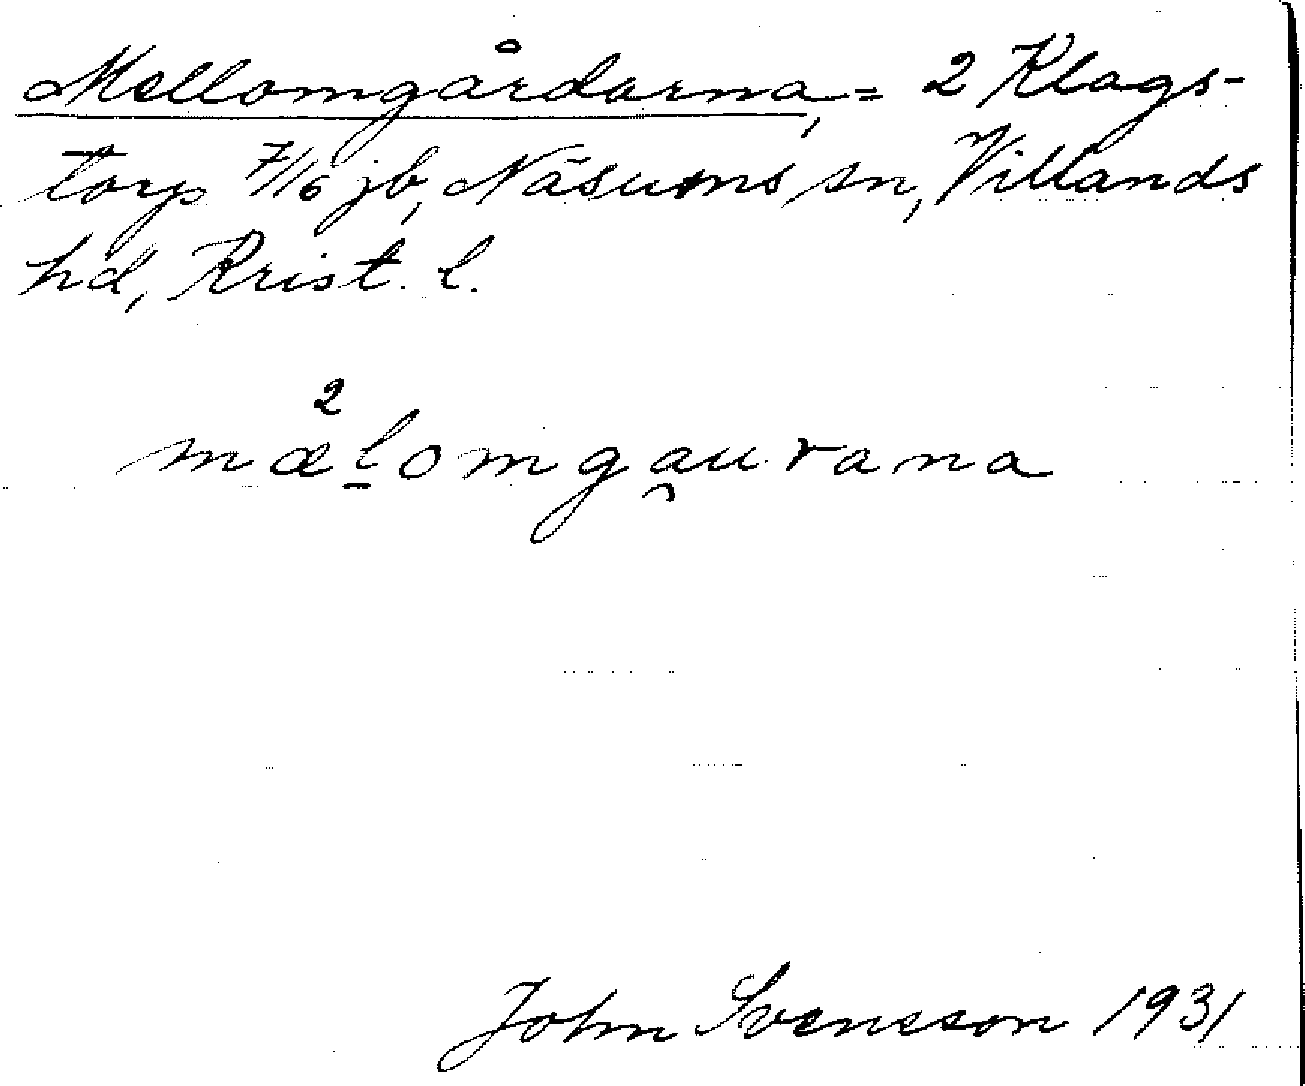 Mellomgårdarna, = 2 Klags-
torp 7/16 jb, Näsums sn, Villands
hd, Krist. l.
mæ²l̠omga̯urana
John Svensson 1931